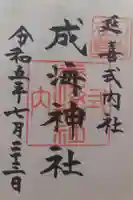 延喜式内社
成海神社
令和五年七月二十三日